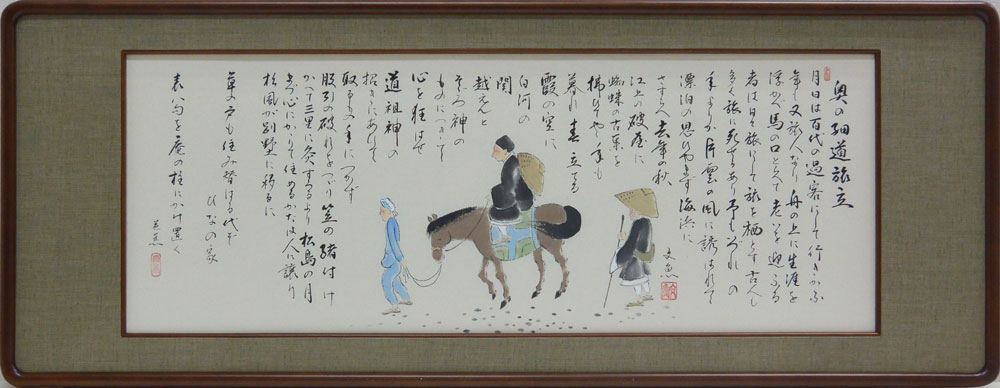 奥の細道旅立
月日は百代の過客にして行きかふ
年も又旅人なり舟の上に生涯を
浮かべ馬の口とらえて老いを迎ふる
者は日々旅にして旅を栖とす古人も
多く旅に死せるあり予もいづれの
年よりか片雲の風に誘はれて
漂泊の思ひやまず海浜に
さすらへ去年の秋
江上の破屋に
蜘蛛の古巣を
払ひてやゝ年も
暮れ春立てる
霞の空に
白河の
関
越えんと
そぞろ神の
ものにつきて
心を狂はせ
道祖神の
招きにあひて
取るもの手につかず
股引の破れをつづり笠の緒付け
かへて三里に灸すゑるより松島の月
まづ心にかかりて住めるかたは人に譲り
杉風が別墅に移るに
草の戸も住み替はる代ぞ
ひなの家
表八句を庵の柱にかけ置く
芭蕉
文魚